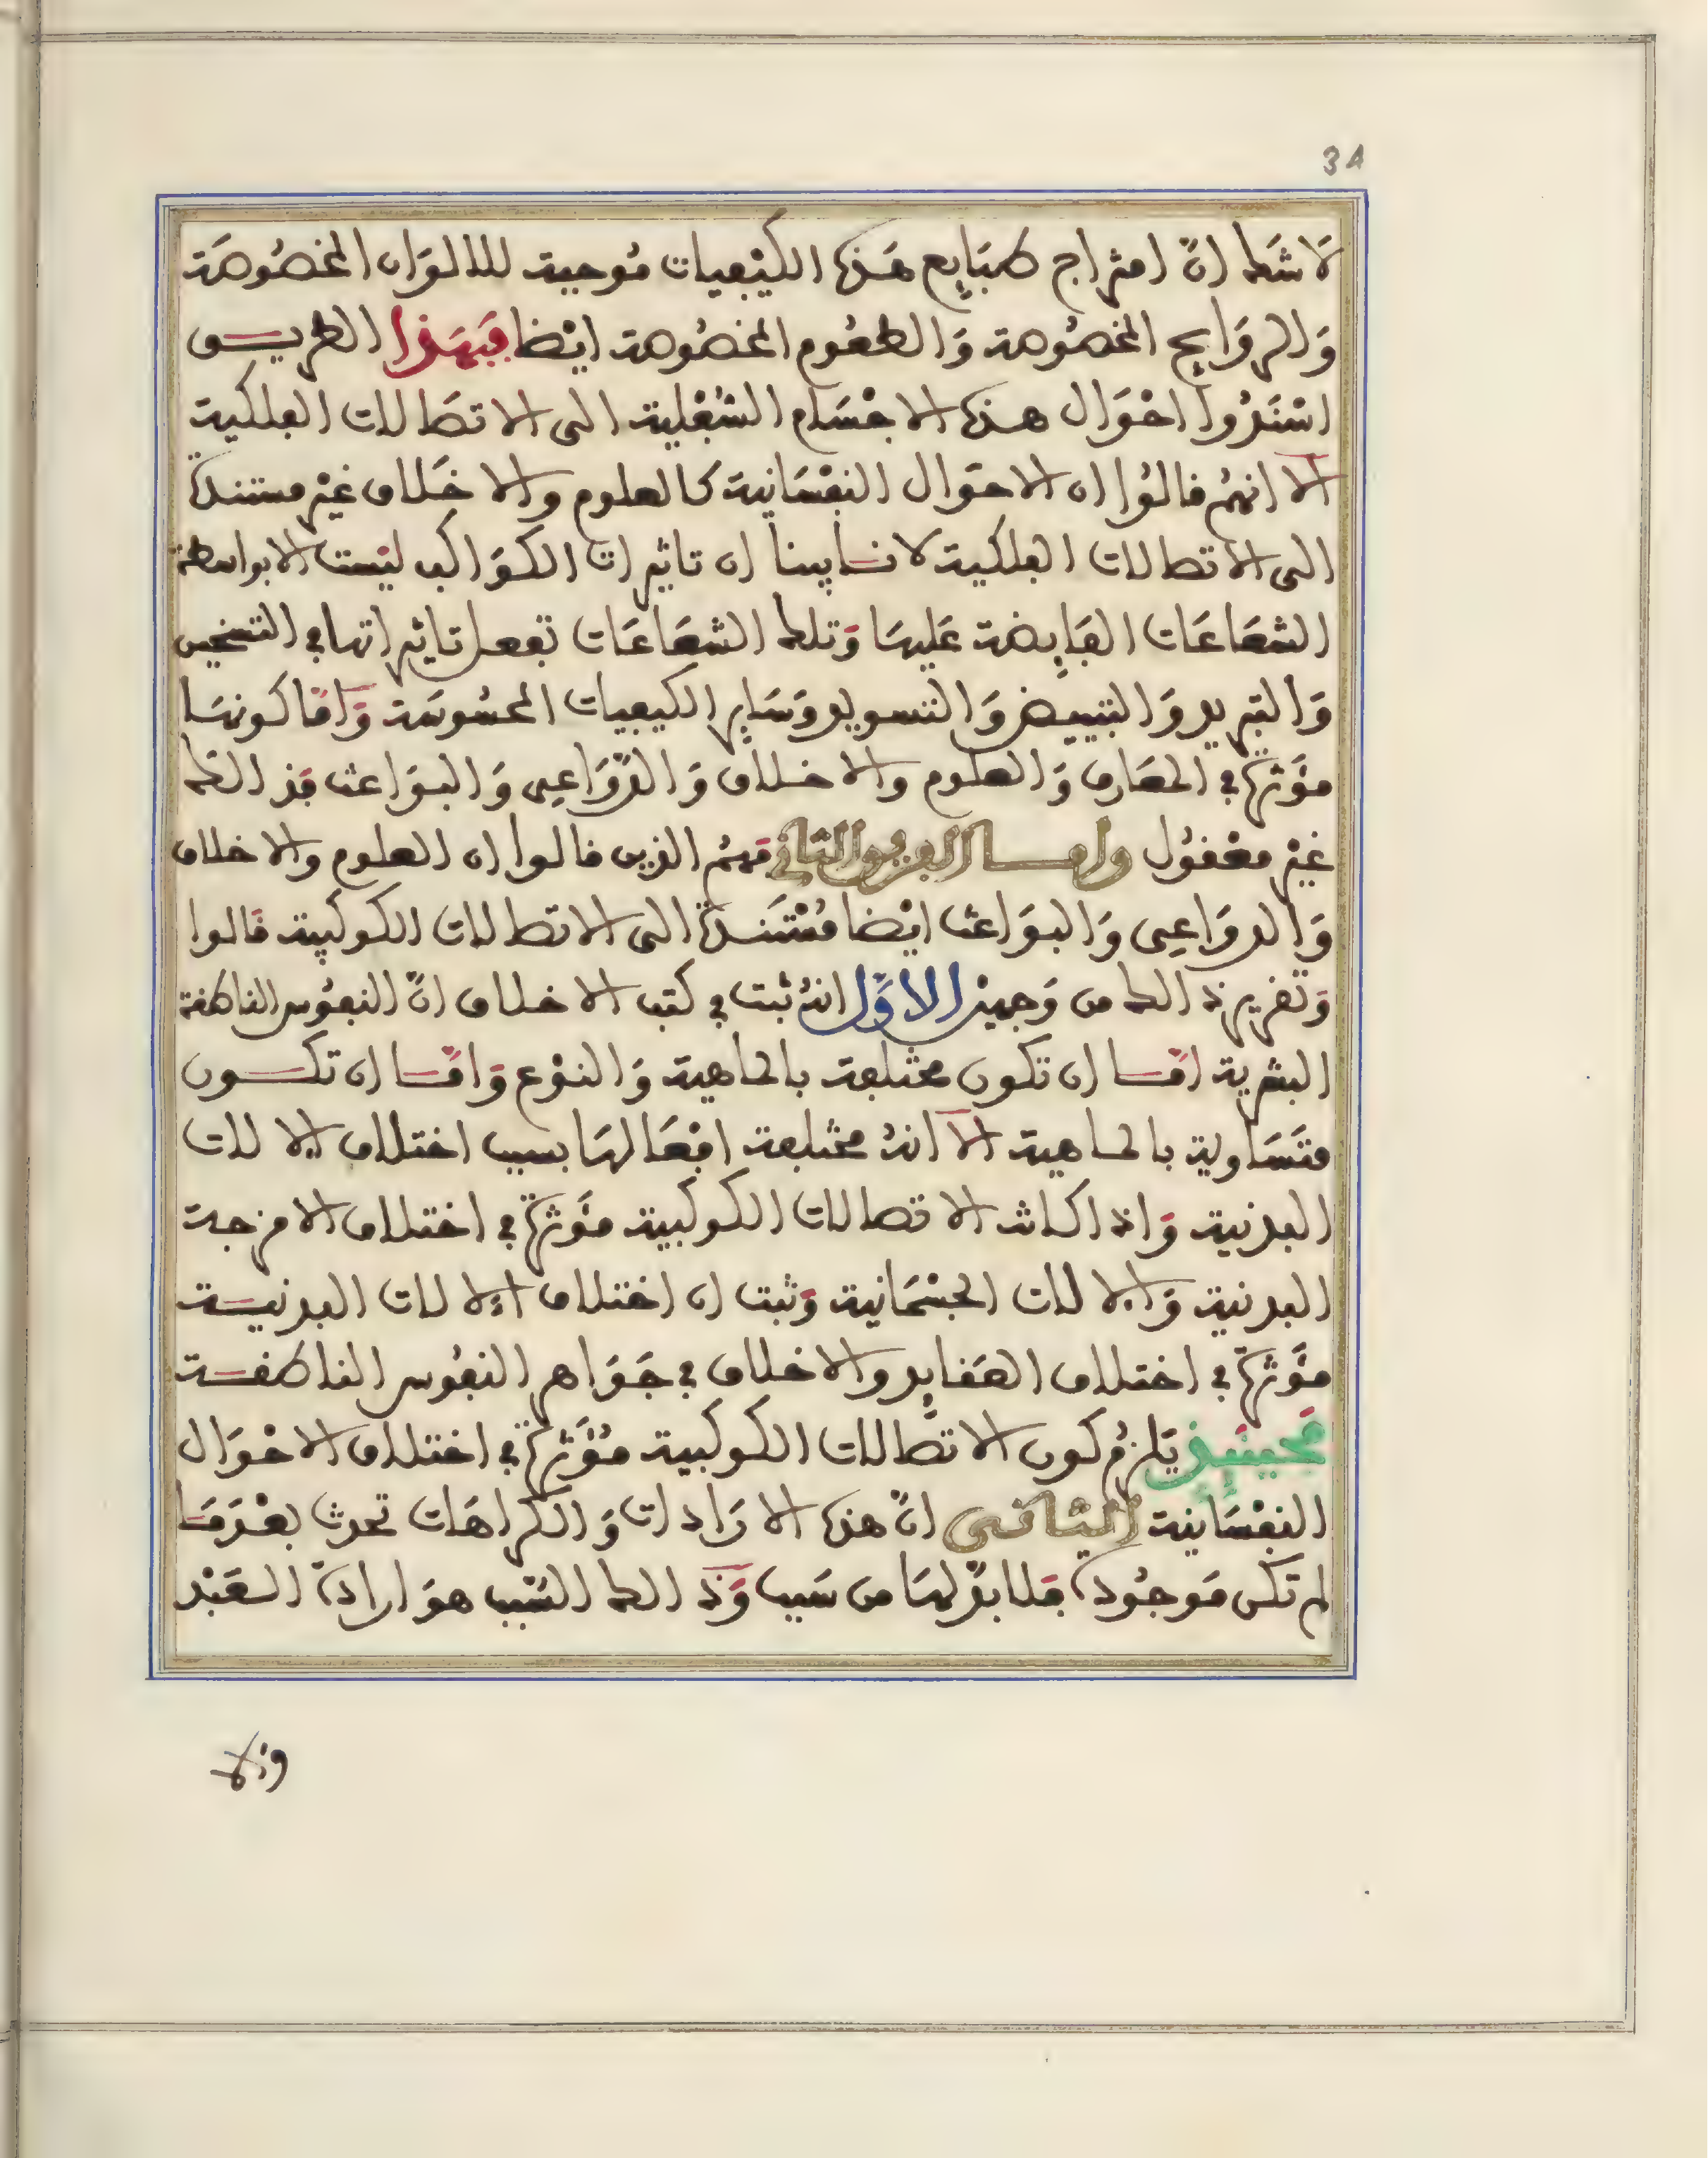 34
لَا شَك انّ امتزاج طبَايِع هَذه الكيْفيات مُوجبة للالوَان المخصُوصَة
وَالروَايح المخصُوصة وَالطعُوم المخصُوصة ايْضا فبَهَذا الطريـــق
اسْنَدُوا احْوَال هذه الاجْسَام السُّفْلية الى الاتصَالات الفلكية
الَّا انهُم قالُوا ان الاحوَال النفْسَانية كالعلوم والاخلاق غيْر مستندة
الى الاتصالات الفلكية لانا بينا ان تاثيرات الكوَاكب ليْست الا بواسطة
الشعَاعَات الفَايِضة عَليهَا وَتلك الشعَاعَات تفعل تاثيراتها في التسخين
وَالتبريد وَالتبييض وَالتسويد وَسَاير الكيفيات المحسُوسَة وَامّا كونهَا
مؤَثرة في المعَارف وَالعلوم والاخلاق وَالدّوَاعِى وَالبوَاعث فذ الك
غيْر معْقُول وامــــا الفريق الثاني فهُم الذين قالوا ان العلوم والاخلاق
وَالدوَاعِى وَالبوَاعث ايْضا مُسْتَندة الى الاتصالات الكوكبية قالوا
وَتقرير ذ الك من وَجهين الاوَّل انهُ ثبت في كتب الاخلاق انّ النفُوس الناطقة
البشرية امّـا ان تكون مختلفة بالماهية وَالنوْع وَامّـا ان تكــــون
متَسَاوية بالماهية الّا انهُ مختلفة افعَالهَا بسبب اختلاف الالات
البدنية وَاذ اكانت الاتصالات الكوكبية مؤَثرة في اختلاف الامزجة
البدنية وَالالات الجسْمَانية وَثبت ان اختلاف الالات البدنيـــة
مؤَثرة في اختلاف العَقايِد والاخلاق في جَوَاهر النفُوس الناطقـــة
فحينيِذ يَلزمُ كون الاتصَّالات الكوكبية مُؤَثرة في اختلاف الاحْوَال
النفْسَانية الثانــي انّ هذه الارَادات وَالكرَاهَات تحدث بعْدَمَـا
لم تكن مَوجُودة فلا بدّ لهَا من سَبب وَذ الك السّبب هوَ ارادة العَبْد
وذلا